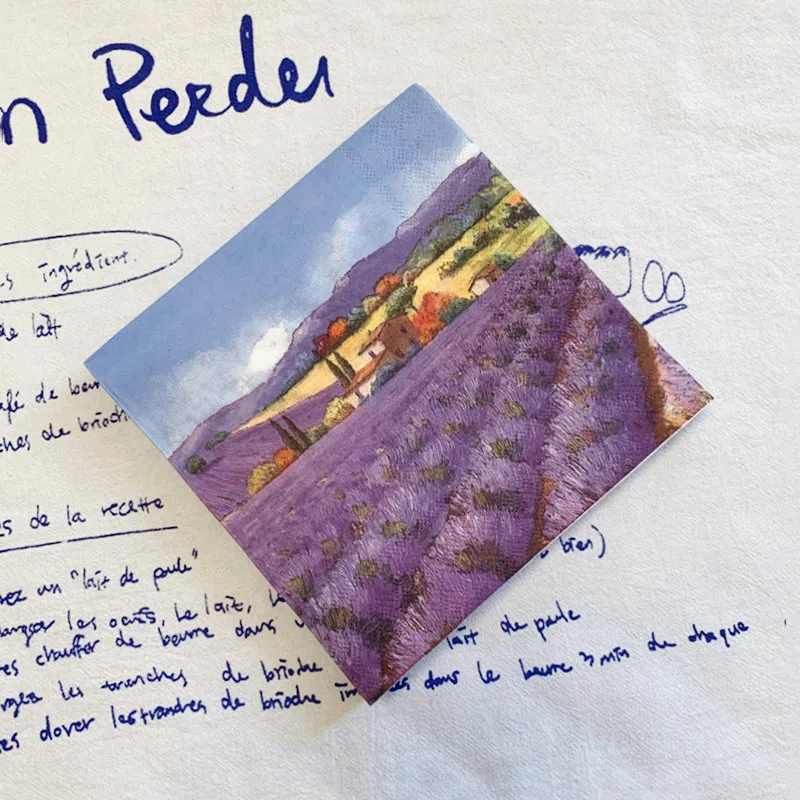 n Perdu
s ingrédient.
de lait
afé de beu
ches de brioch
es de la recette
rez un "lait de poule"
langer les oeufs, le lait, l
bien)
es chauffer de beurre dans
lait de poule
rgez les tranches de brioche
es dorer les tranches de brioche im es dans le beurre 3 min de chaque